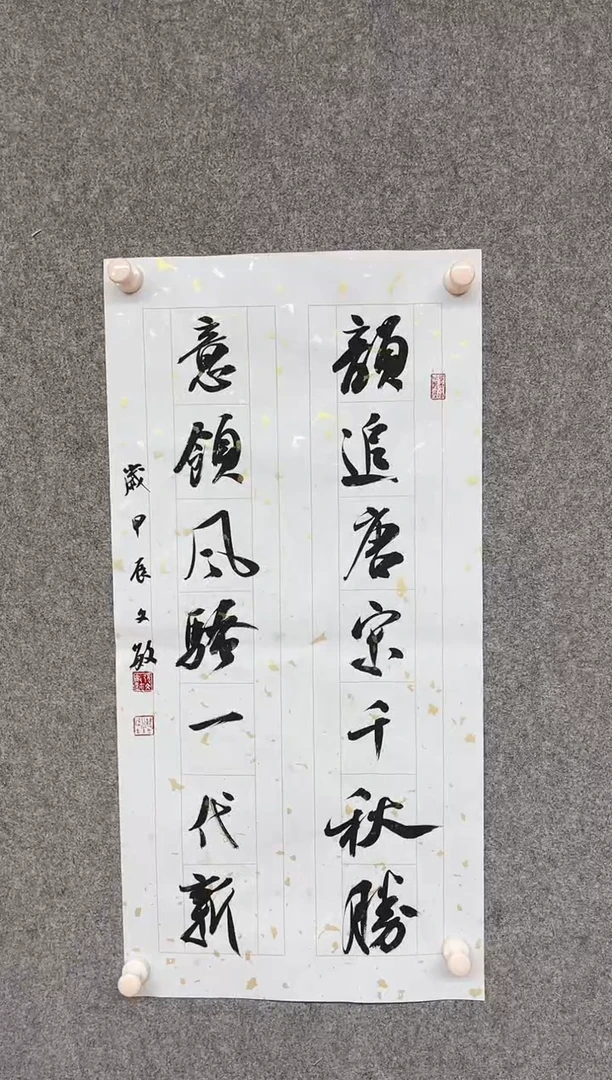 韻追唐宋千秋勝
意領風騷一代新
歲甲辰文敏